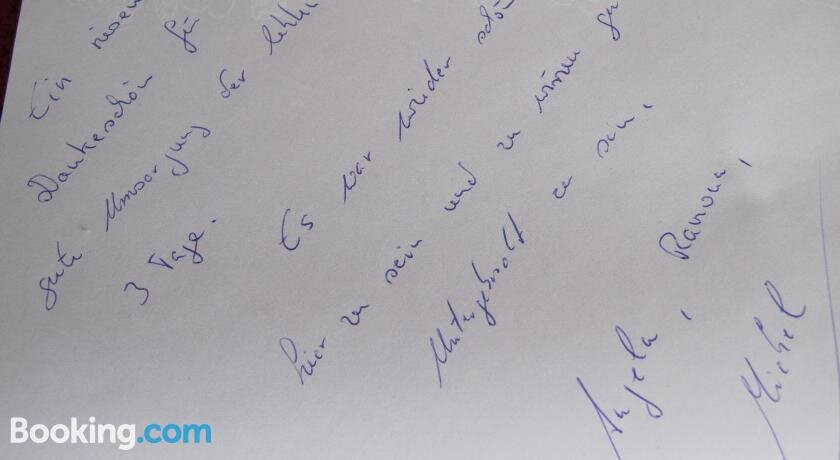 Ein riesen
Dankeschön für
gute Umsorgung der letzten
3 Tage.
Es war wieder schön
hier zu sein und zu wissen gut
Untergebracht zu sein.
Angela, Ramona,
Michel
Booking.com